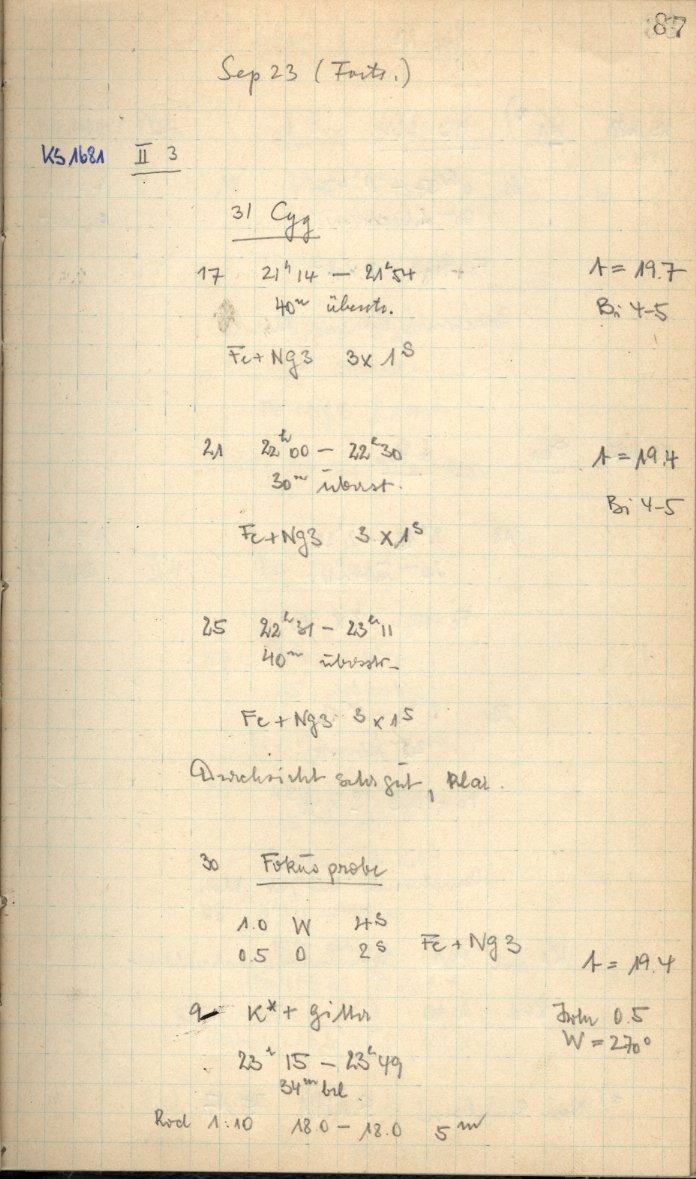 87
Sep 23 (Forts.)
KS 1681 II 3
31 Cyg
17 21ʰ14 — 21ʰ54 t = 19.7
40ᵐ überstr. Bi 4-5
Fe+Ng3 3x1ˢ
21 22ʰ00 — 22ʰ30 t = 19.4
30ᵐ überst.
Bi 4-5
Fe+Ng3 3x1ˢ
25 22ʰ31 — 23ʰ11
40ᵐ überstr.
Fe+Ng3 3x1ˢ
Durchsicht sehr gut, klar.
30 Fokusprobe
1.0 W 4ˢ
0.5 O 2ˢ Fe+Ng3
t = 19.4
9 K*+Gitter 0.5
W = 270°
23ʰ15 — 23ʰ49
34ᵐ bel.
1:10 18.0 — 18.0 5ᵐ